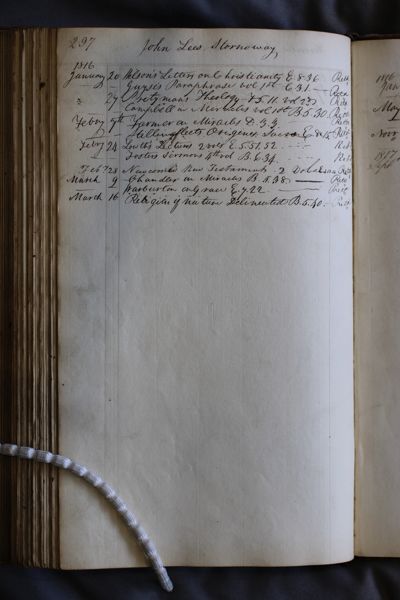 297 John Lees, Stornoway
1816
January 20 Watson's Letters on Christianity E.8.36. Retd
— Guyse's Paraphrase vol 1st C.3.1 —
27 Theology
Campbell on Miracles vol 1st B.5.30
Febry 9th Farmer on Miracles D.3.3
Stillingfleets Origines Sacrae E.8.15 Ret
Febry 24 Lowths Lectures 2 vols E.5.31.32 - - - - Ret
Fosters Sermons 4th vol B.6.34. Ret
Feb 28 Newcomes New Testament 2
March 9 Chandler on Miracles B.5.38. — Ret
Warburton on Grace E.7.22 — Ret
March 16 Religion of Nature Delineated B.5.40. Ret
1816
Jan
May
Nov
1817